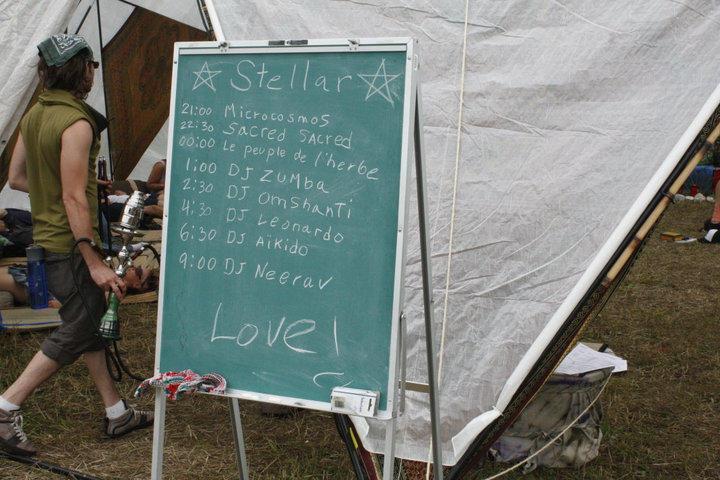 Stellar
21:00 Microcosmos
22:30 Sacred Sacred
00:00 Le peuple de l'herbe
1:00 DJ ZUMBA
2:30 DJ OmShanTi
4:30 DJ Leonardo
6:30 DJ Aïkido
9:00 DJ Neerav
Love!